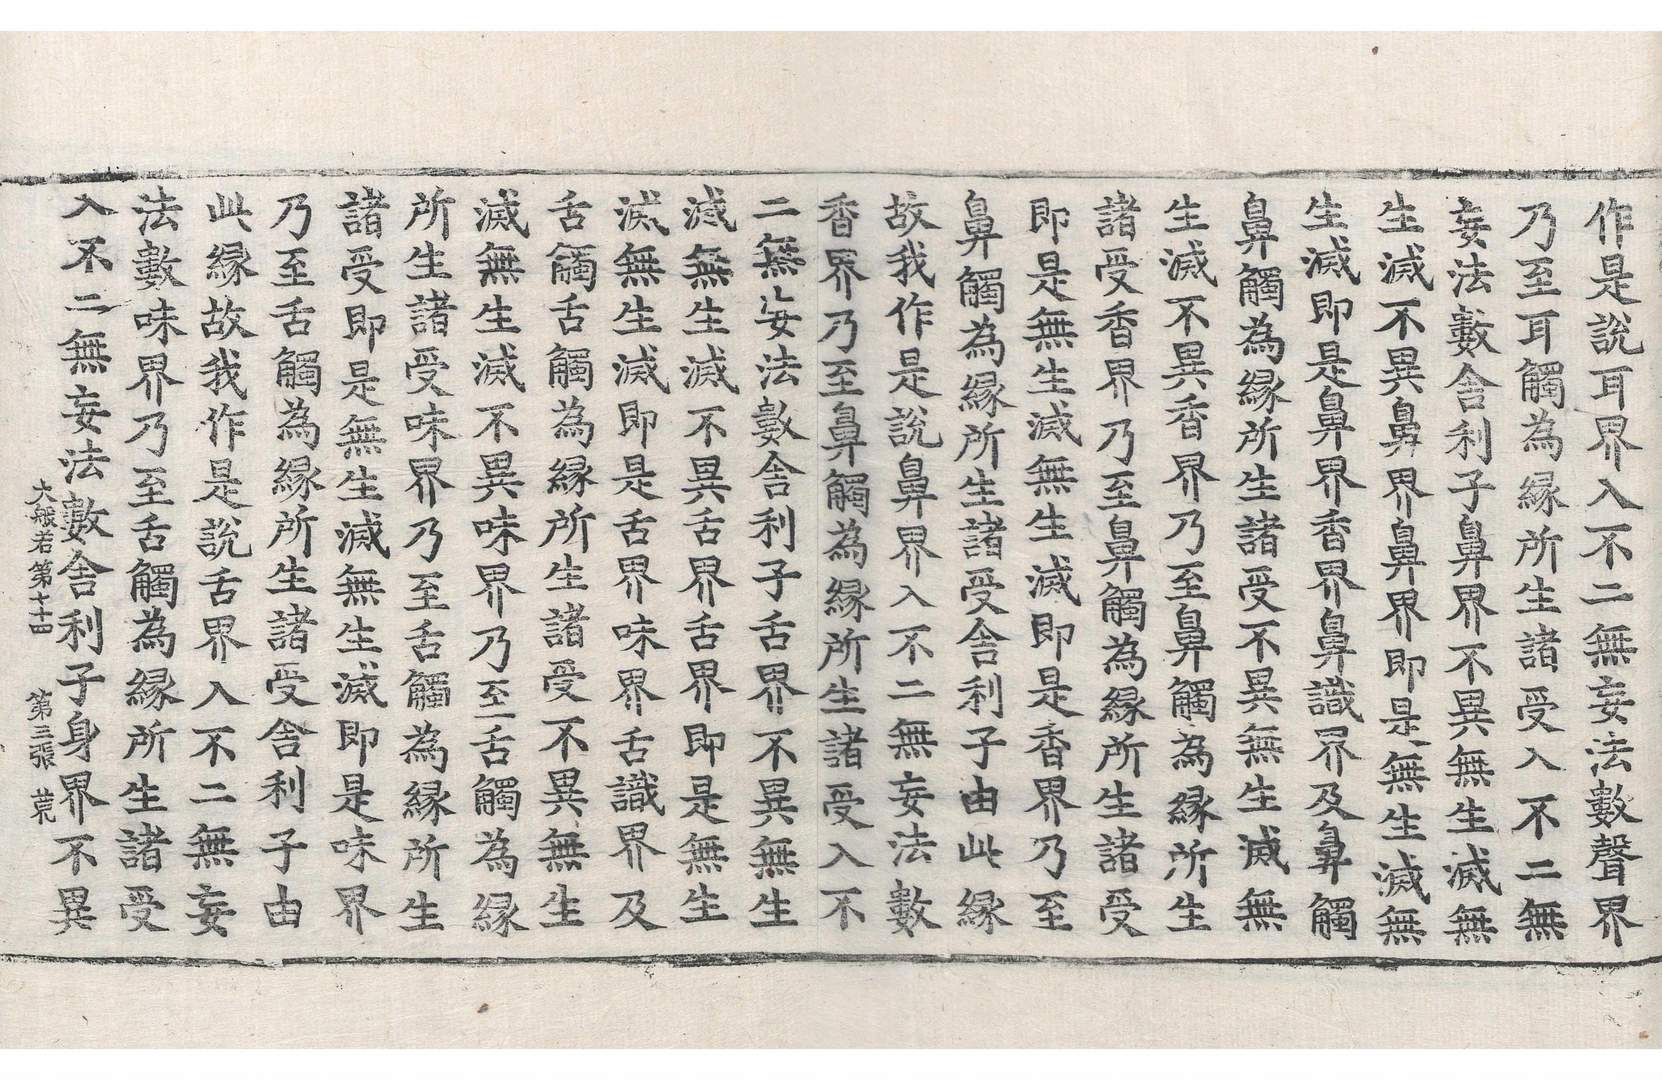 作是說耳界入不二無妄法數聲界
乃至耳觸為縁所生諸受入不二無
妄法數舍利子鼻界不異無生滅無
生滅不異鼻界鼻界即是無生滅無
生滅即是鼻界香界鼻識界及鼻觸
鼻觸為縁所生諸受不異無生滅無
生滅不異香界乃至鼻觸為縁所生
諸受香界乃至鼻觸為縁所生諸受
即是無生滅無生滅即是香界乃至
鼻觸為縁所生諸受舍利子由此縁
故我作是說鼻界入不二無妄法數
香界乃至鼻觸為縁所生諸受入不
二無妄法數舍利子舌界不異無生
滅無生滅不異舌界舌界即是無生
滅無生滅即是舌界味界舌識界及
舌觸舌觸為縁所生諸受不異無生
滅無生滅不異味界乃至舌觸為縁
所生諸受味界乃至舌觸為縁所生
諸受即是無生滅無生滅即是味界
乃至舌觸為縁所生諸受舍利子由
此縁故我作是說舌界入不二無妄
法數味界乃至舌觸為縁所生諸受
入不二無妄法數舍利子身界不異
大般若第七十四 第三張 荒